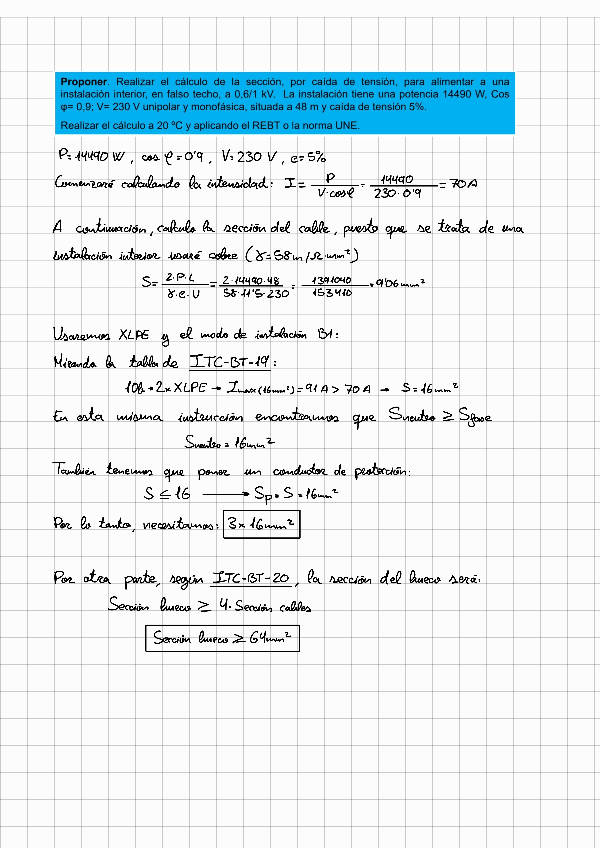 Proponer. Realizar el cálculo de la sección, por caída de tensión, para alimentar a una
instalación interior, en falso techo, a 0,6/1 kV. La instalación tiene una potencia 14490 W, Cos
φ= 0,9; V= 230 V unipolar y monofásica, situada a 48 m y caída de tensión 5%.
Realizar el cálculo a 20 ºC y aplicando el REBT o la norma UNE.
P=14490 W, cos φ=0'9, V=230 V, e=5%
Comenzaré calculando la intensidad: I = P / V·cosφ = 14490 / 230·0'9 = 70 A
A continuación, calculo la sección del cable, puesto que se trata de una
instalación interior usaré cobre (γ=58m/Ω·mm²)
S= 2·P·L / γ·e·U = 2·14490·48 / 58·11'5·230 = 1391040 / 153410 = 9'06mm²
Usaremos XLPE y el modo de instalación B1:
Mirando la tabla de ITC-BT-19:
10b → 2x XLPE → Imax(16mm²) = 91 A > 70 A → S=16mm²
En esta misma instrucción encontramos que Sneutro ≥ Sfase
Sneutro = 16mm²
También tenemos que poner un conductor de protección:
S ≤ 16 → Sp = S = 16mm²
Por lo tanto, necesitamos: 3x16mm²
Por otra parte, según ITC-BT-20, la sección del hueco será:
Sección hueco ≥ 4·Sección cables
Sección hueco ≥ 64mm²